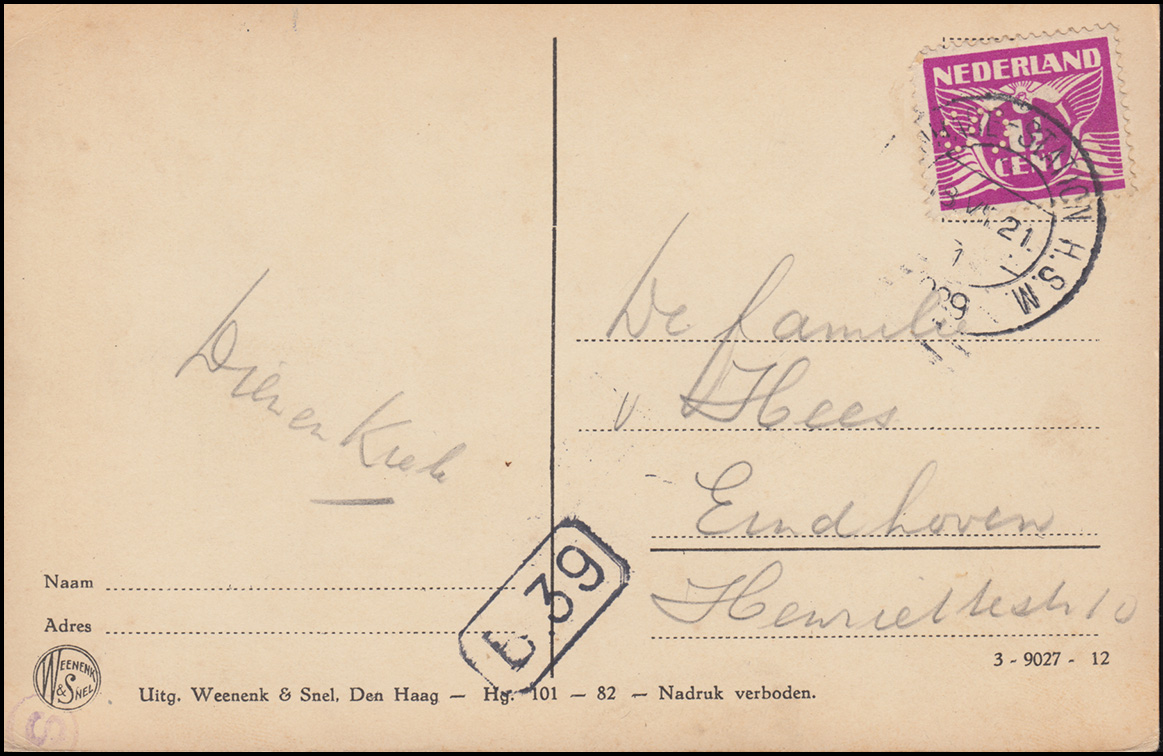 NEDERLAND
CENT
-STATION H.S.M.
21.
1
De familie
v Hees
Eindhoven
Henriettestr 10
Dien en
B 39
Naam
Adres
WEENENK & SNEL
3 - 9027 - 12
Uitg. Weenenk & Snel, Den Haag — Hg. 101 — 82 — Nadruk verboden.
S